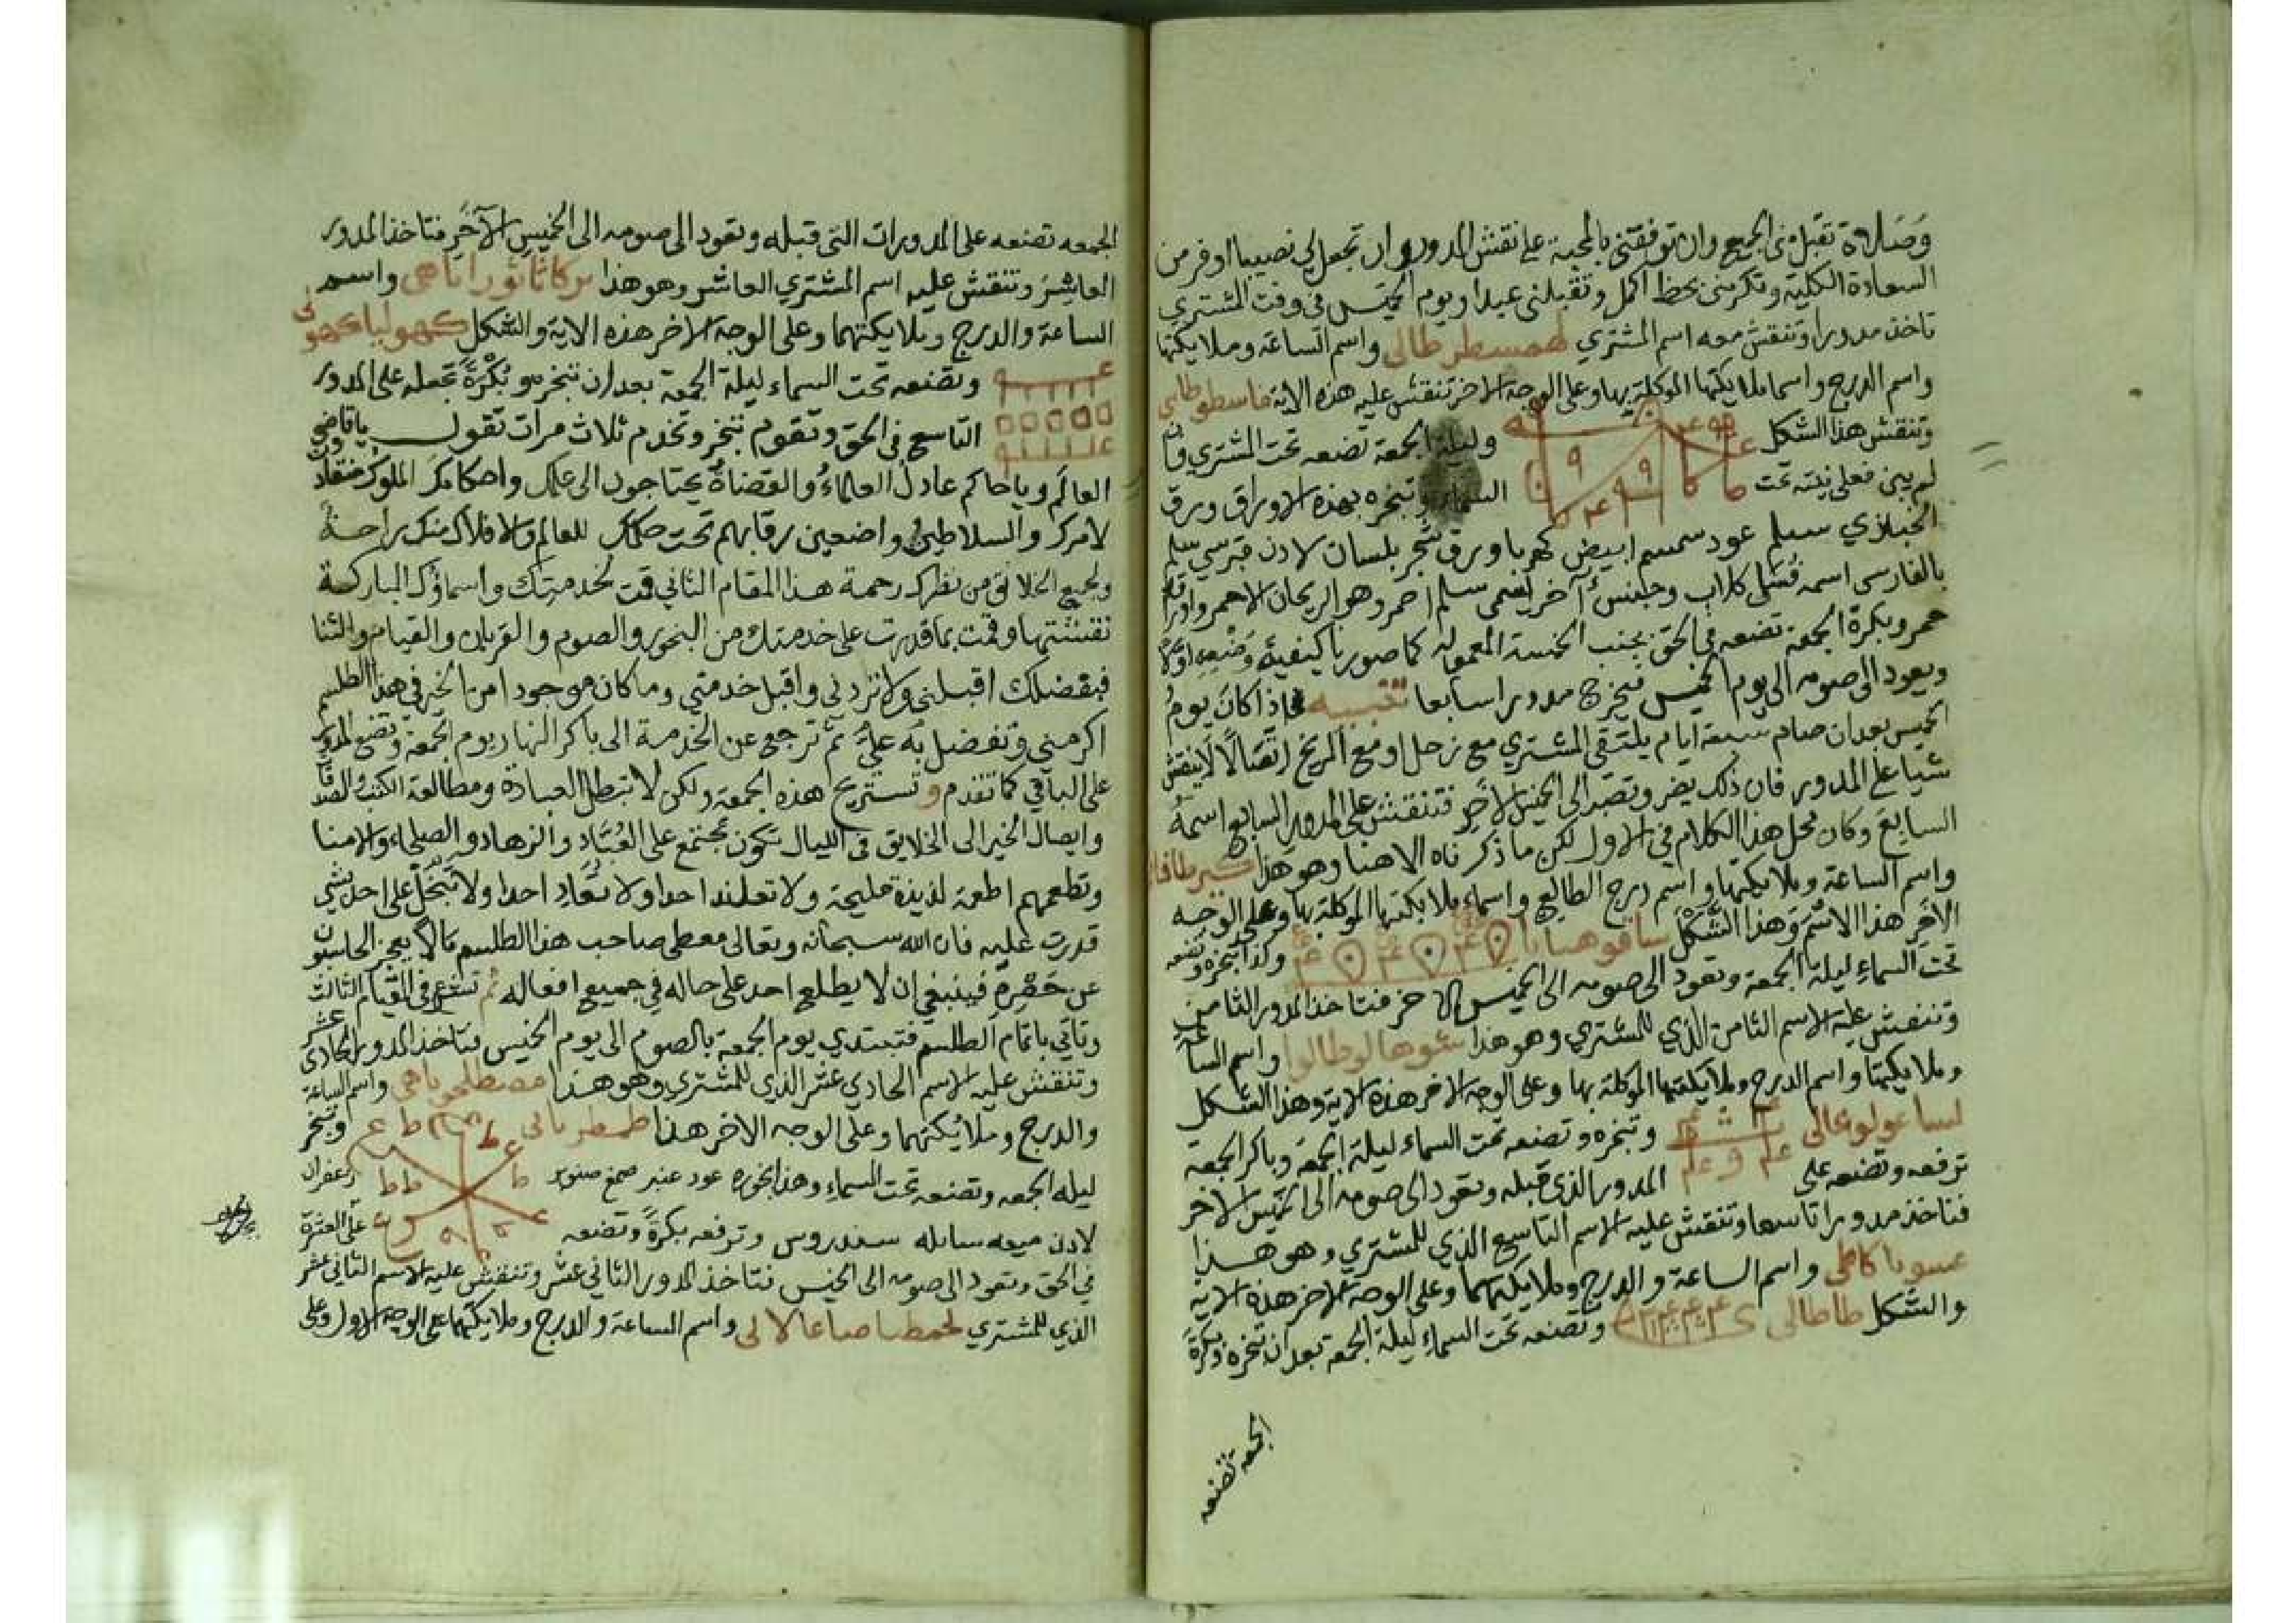 وصلاة تقبل منى الجميع وان توفقنى بالمحبة على نقش المدور وان تجعل لى نصيبا اوفر من
السعادة الكلية وتكرمنى بحظ اكمل وتقبلنى عبدا ويوم الخميس فى وقت المشترى
تاخذ مدورا وتنقش معه اسم المشتري واسم الساعة وملايكتها
واسم الدرج واسما ملايكتها الموكلة بها وعلى الوجه الاخر تنقش عليه هذه الاية
وتنقش هذا الشكل وليلة الجمعة تضعه تحت المشتري فان
لم يبن فعلى نيته تحت السماء وتبخره بهذه الاوراق ورق
عود سمسم ابيض كهربا ورق شجر بلسان لادن قبرسي
بالفارسى اسمه وجنس آخر يسمى احمر وهو الريحان الاحمر واوراقه
حمر وبكرة الجمعة تضعه فى الحق بجنب الخمسة المعموله كما صورنا كيفية وضعه اولا
ويعود الى صومه الى يوم الخميس فيخرج مدورا سابعا تنبيه فاذا كان يوم
الخميس بعد ان صام سبعة ايام يلتقى المشتري مع زحل او مع المريخ اتصالا لا ينقش
شيا على المدور فان ذلك يضر وتصبر الى الخميس الآخر فتنقش على المدور السابع اسمه
السابع وكان محل هذا الكلام فى الاول لكن ما ذكرناه الا هنا وهو هذا
واسم الساعة وملايكتها واسم درج الطالع واسماء ملايكتها الموكلة بها وعلى الوجه
الاخر هذا الاسم وهذا الشكل وكذا تبخره وتضعه
تحت السماء ليلة الجمعة وتعود الى صومه الى الخميس الاخر فتاخذ المدور الثامن
وتنقش عليه الاسم الثامن الذي للمشتري وهو هذا واسم الساعة
وملايكتها واسم الدرج وملايكتها الموكلة بها وعلى الوجه الاخر هذه الاية وهذا الشكل
وتبخره وتضعه تحت السماء ليلة الجمعة وباكر الجمعة
ترفعه وتضعه على المدور الذى قبله وتعود الى صومه الى الخميس الاخر
فتاخذ مدورا تاسعا وتنقش عليه الاسم التاسع الذي للمشتري وهو هذا
واسم الساعة والدرج وملايكتهما وعلى الوجه الاخر هذه الاية
والشكل طاطالى وتضعه تحت السماء ليلة الجمعة بعد ان تبخره وبكرة
الجمعة تضعه
الجمعه تضعه على المدورات التى قبله وتعود الى صومه الى الخميس الآخر فتاخذ المدور
العاشر وتنقش عليه اسم المشتري العاشر وهو هذا واسم
الساعة والدرج وملايكتهما وعلى الوجه الاخر هذه الاية والشكل
وتضعه تحت السماء ليلة الجمعة بعد ان تبخره بكرة تجعله على المدور
التاسع فى الحق وتقوم تبخر وتخدم ثلاث مرات تقول يا قاضى
العالم ويا حاكم عادل العلماء والقضاة يحتاجون الى علمك واحكامك الملوك منقادون
لامرك والسلاطين واضعين رقابهم تحت حكمك للعالم والافلاك منك راحة
ولجميع الخلائق من نظرك رحمة هذا المقام الثانى قمت لخدمتك واسماؤك المباركة
نقشتها وقمت بما قدرت على خدمتك من البخور والصوم والقربان والقيام والثنا
فبفضلك اقبلنى ولا تردنى واقبل خدمتى وما كان موجودا من الخير فى هذا الطلسم
اكرمنى وتفضل به على ثم ترجع عن الخدمة الى باكر النهار يوم الجمعة وتضع المدور
على الباقى كما تقدم وتستريح هذه الجمعة ولكن لا تبطل العبادة ومطالعة الكتب والصدقات
وايصال الخير الى الخلايق فى الليال تكون تجتمع على العباد والزهاد والصلحاء والامنا
وتطعمهم اطعمة لذيذة مليحة ولا تعاند احدا ولا تعادِ احدا ولا تبخل على احد بشى
قدرت عليه فان الله سبحانه وتعالى معطى صاحب هذا الطلسم مالا يعجز الحاسبون
عن حصره فينبغى ان لا يطلع احد على حاله فى جميع افعاله ثم تشرع فى القيام الثالث
وتاتى باتمام الطلسم فتبتدي يوم الجمعة بالصوم الى يوم الخميس فتاخذ المدور الحادى عشر
وتنقش عليه الاسم الحادي عشر الذي للمشترى وهو هذا واسم الساعة
والدرج وملائكتهما وعلى الوجه الاخر هذا وتبخر
ليلة الجمعه وتضعه تحت السماء وهذا بخوره عود عنبر صمغ صنوبر زعفران
لادن ميعه سايله سندروس وترفعه بكرة وتضعه على العشرة
فى الحق وتعود الى صومه الى الخميس فتاخذ المدور الثانى عشر وتنقش عليه الاسم الثانى عشر
الذي للمشتري واسم الساعة والدرج وملايكتهما على الوجه الاول وعلى